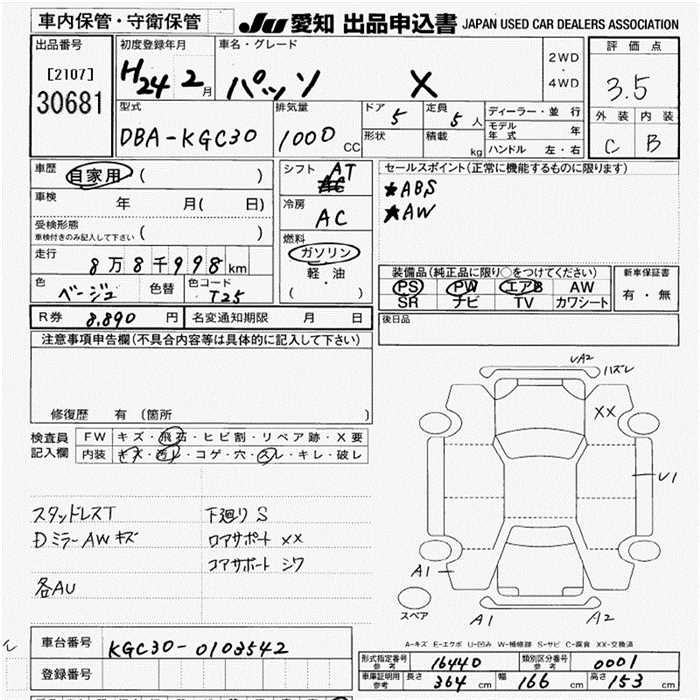 車内保管・守衛保管
JU 愛知 出品申込書 JAPAN USED CAR DEALERS ASSOCIATION
出品番号
[2107]
30681
初度登録年月
H24 2 月
車名・グレード
パッソ X
2WD
・
4WD
評価点
3.5
外装 内装
C B
型式
DBA-KGC30
排気量
1000 CC
ドア 5
定員 5 人
形状
積載 kg
ディーラー・並 行
モデル年式 年
ハンドル 左・右
車歴
自家用 ( )
車検 年 月( 日)
受検形態
車検付きのみ記入して下さい ( )
走行
8万8千998km
色
ベージュ
色替
色コード
T25
シフト AT
冷房
AC
燃料
ガソリン
軽・油
( )
セールスポイント(正常に機能するものに限ります)
★ABS
★AW
装備品(純正品に限り○をつけてください)
PS PW エアB AW
SR ナビ TV カワシート
新車保証書
有・無
R券 8,890 円
名変通知期限 月 日
後日品
注意事項申告欄(不具合内容等は具体的に記入して下さい)
修復歴 有 (箇所 )
検査員
記入欄
FW キズ・飛石・ヒビ割・リペア跡・X要
内装 キズ・汚れ・コゲ・穴・スレ・キレ・破レ
スタッドレスT
DミラーAWキズ
各AU
下廻りS
ロアサポート XX
コアサポート シワ
UA2
ハズレ
XX
U1
A1
スペア
A1
A2
A-キズ E-エクボ U-凹み W-補修跡 S-サビ C-腐食 XX-交換済
車台番号 KGC30-0103542
登録番号
形式指定番号
参考
16440
類別区分番号
参考
0001
車庫証明用
参考
長さ 364 cm 幅 166 cm 高さ 153 cm